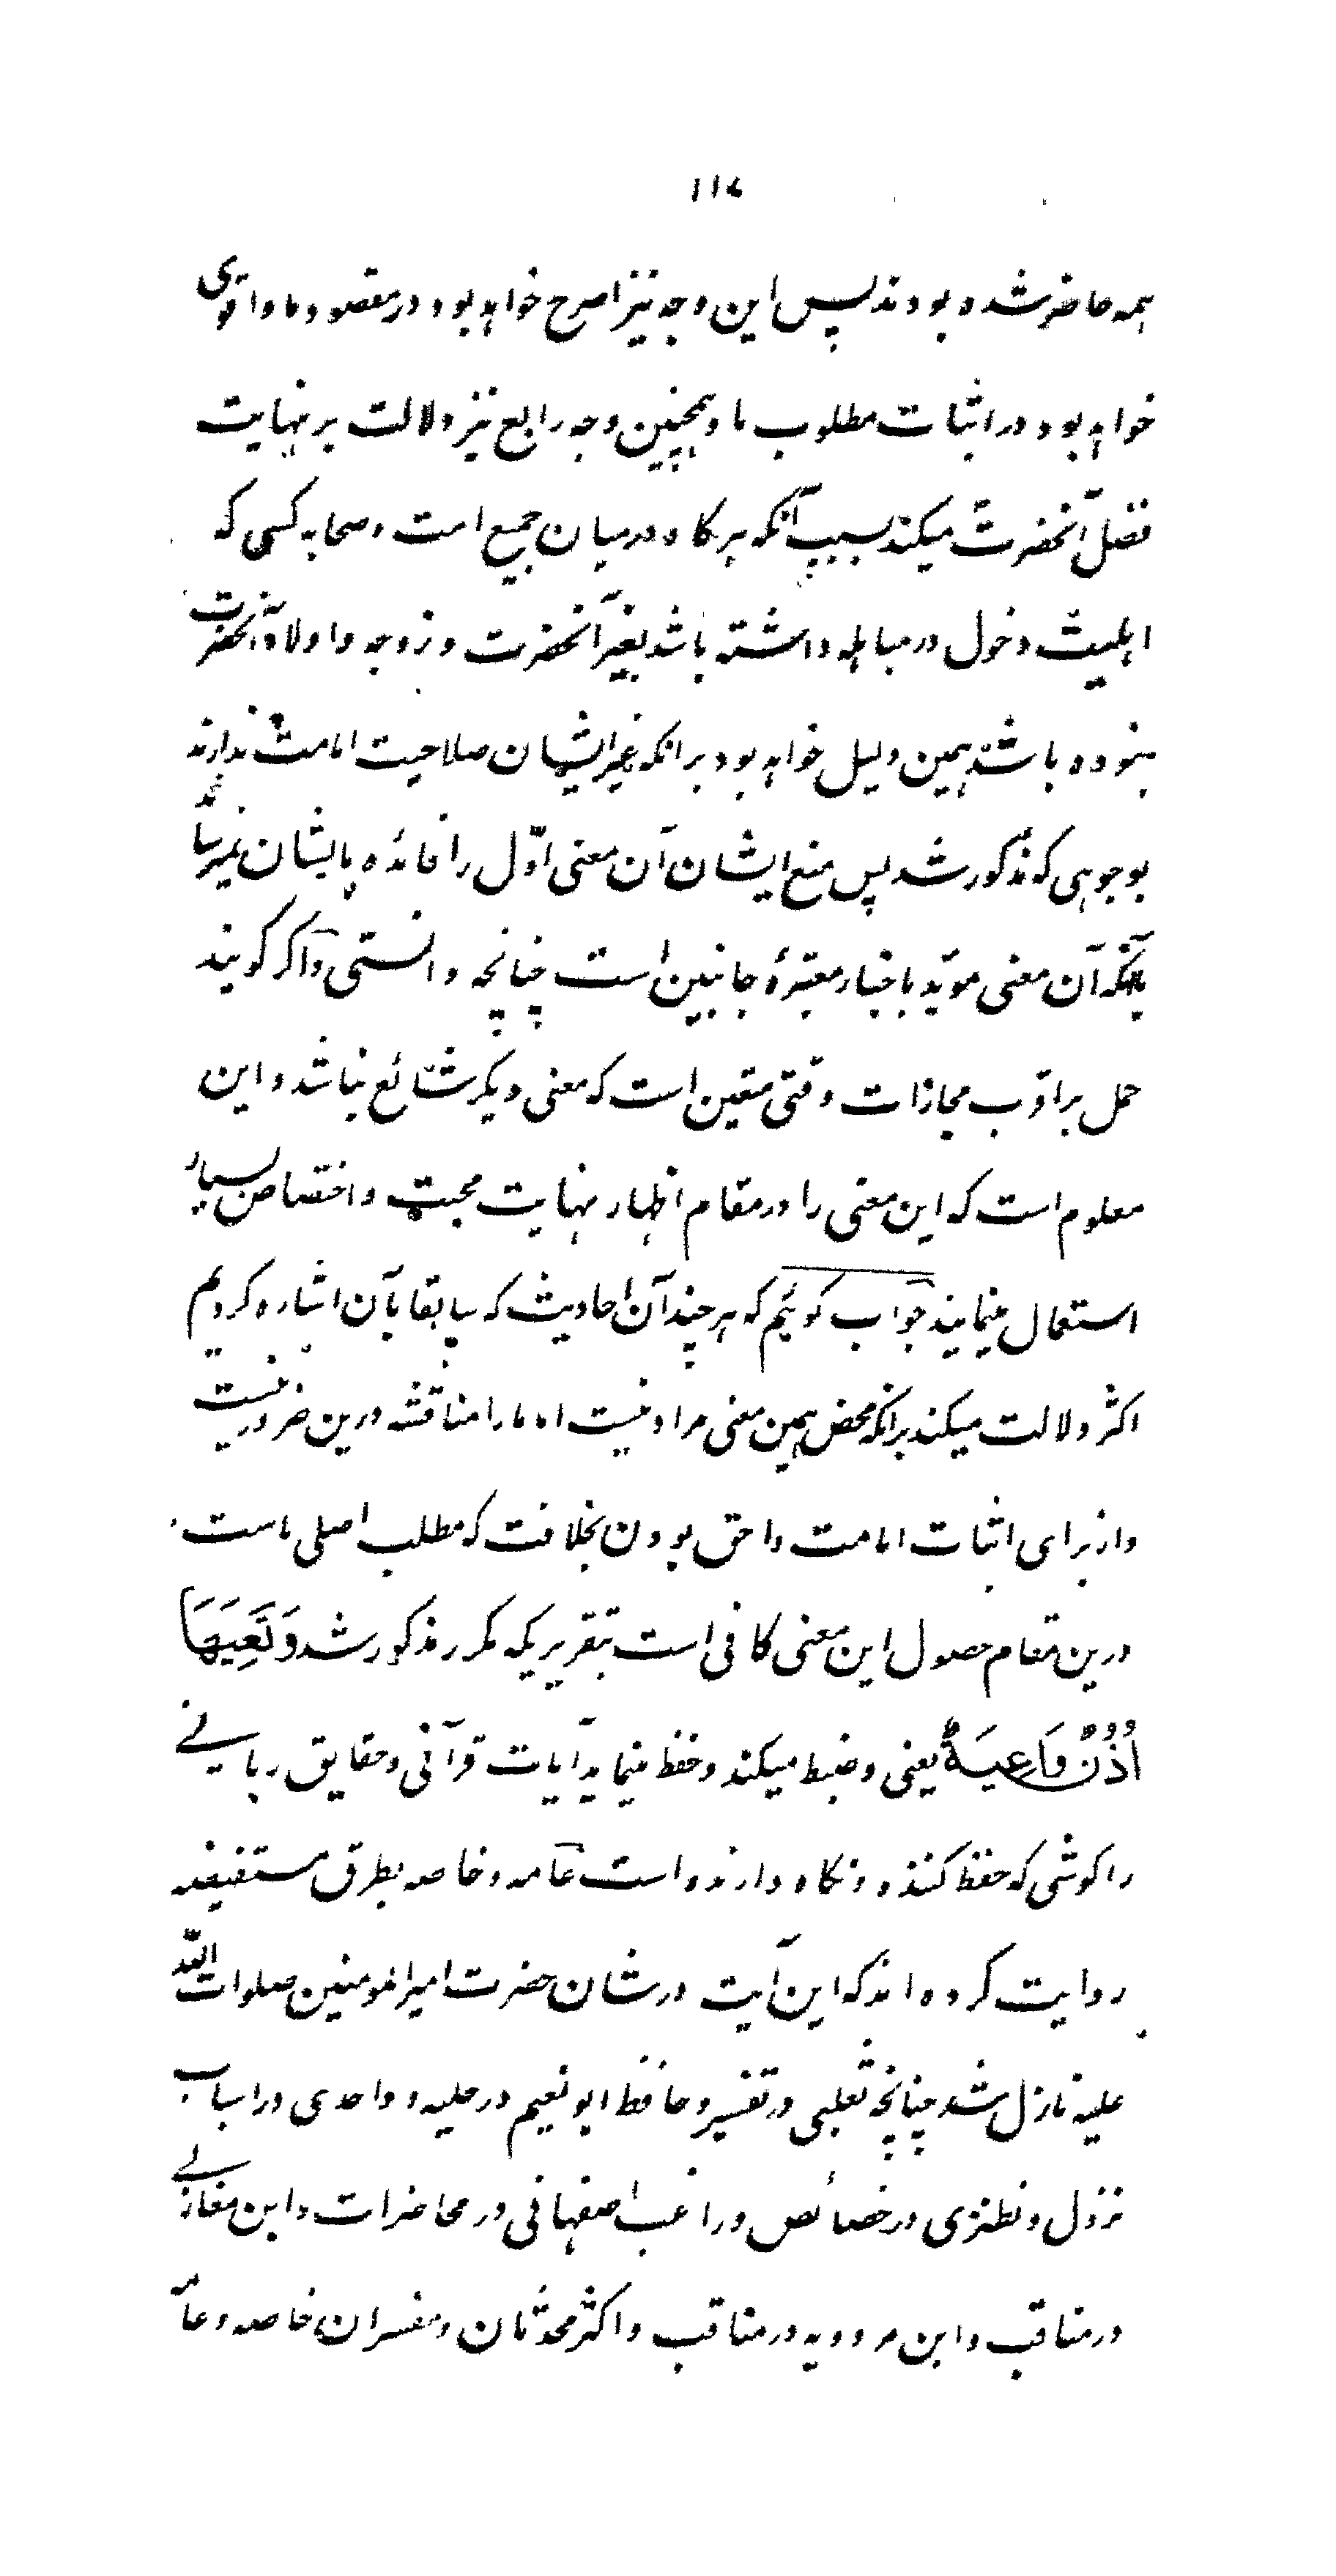 ۱۱۷
همه حاضر شده بودند پس این وجه نیز اصرح خواهد بود در مقصود ما و اقوی
خواهد بود در اثبات مطلوب ما و همچنین وجه رابع نیز دلالت بر نهایت
فضل آنحضرت میکند بسبب آنکه هرکاه در میان جمیع امت و صحابه کسی که
اهلیت دخول در مباهله داشته باشد بغیر آنحضرت و زوجه و اولاد آنحضرت
نبوده باشد همین دلیل خواهد بود برانکه غیر ایشان صلاحیت امامت ندارند
بوجوهی که مذکور شد پس منع ایشان آن معنی اوّل را فائده بایشان نمیرساند
بآنکه آن معنی مویّد باخبار معتبرهٔ جانبین است چنانچه دانستی و اکر کویند
حمل بر اقرب مجازات وقتی متعین است که معنی دیکر شائع نباشد و این
معلوم است که این معنی را در مقام اظهار نهایت محبت و اختصاص بسیار
استعمال مینمایند جواب کوئیم که هر چند آن احادیث که سابقا بآن اشاره کردیم
اکثر دلالت میکند برانکه محض همین معنی مراد نیست اما ما را مناقشه درین ضرور نیست
و از برای اثبات امامت و احق بودن بخلافت که مطلب اصلی ماست
درین مقام حصول این معنی کافی است بتقریریکه مکرر مذکور شد وَتَعِيَهَا
اُذُنٌ وَاعِيَةٌ یعنی و ضبط میکند و حفظ مینماید آیات قرآنی و حقایق ربانے
را کوشی که حفظ کننده و نکاه دارنده است عامه و خاصه بطرق مستفیضه
روایت کرده اند که این آیت در شان حضرت امیرالمومنین صلوات اللّه
علیه نازل شد چنانچه ثعلبی در تفسیر و حافظ ابو نعیم در حلیه و واحدی در اسباب
نزول و نطنزی در خصائص و راغب اصفهانی در محاضرات و ابن مغازلے
در مناقب و ابن مردویه در مناقب و اکثر محدّثان و مفسران خاصه و عامّه